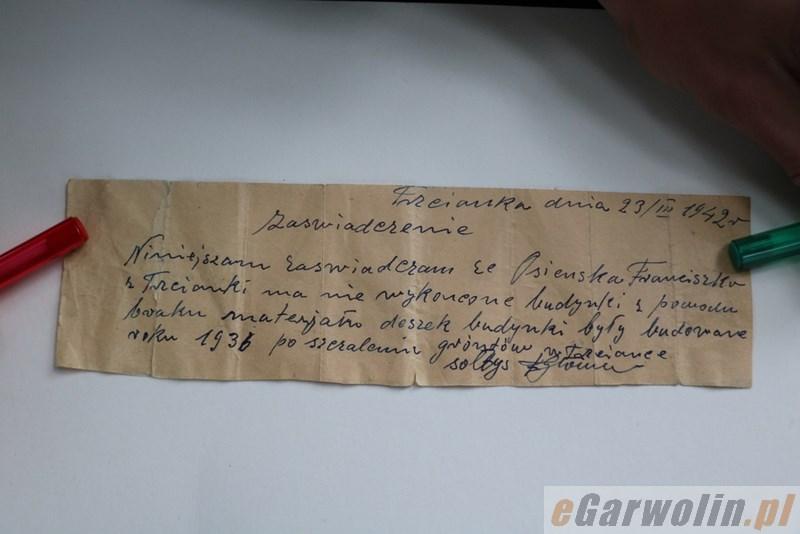 Trzcianka dnia 23/III 1942 r
Zaswiadczenie
Niniejszam zaswiadczam że Osienska Franciszka
z Trzcianki ma nie wykonczone budynki z powodu
braku materjału deszek budynki były budowane
roku 1936 po szczaleniu gróntów w Trzciance
sołtys
eGarwolin.pl